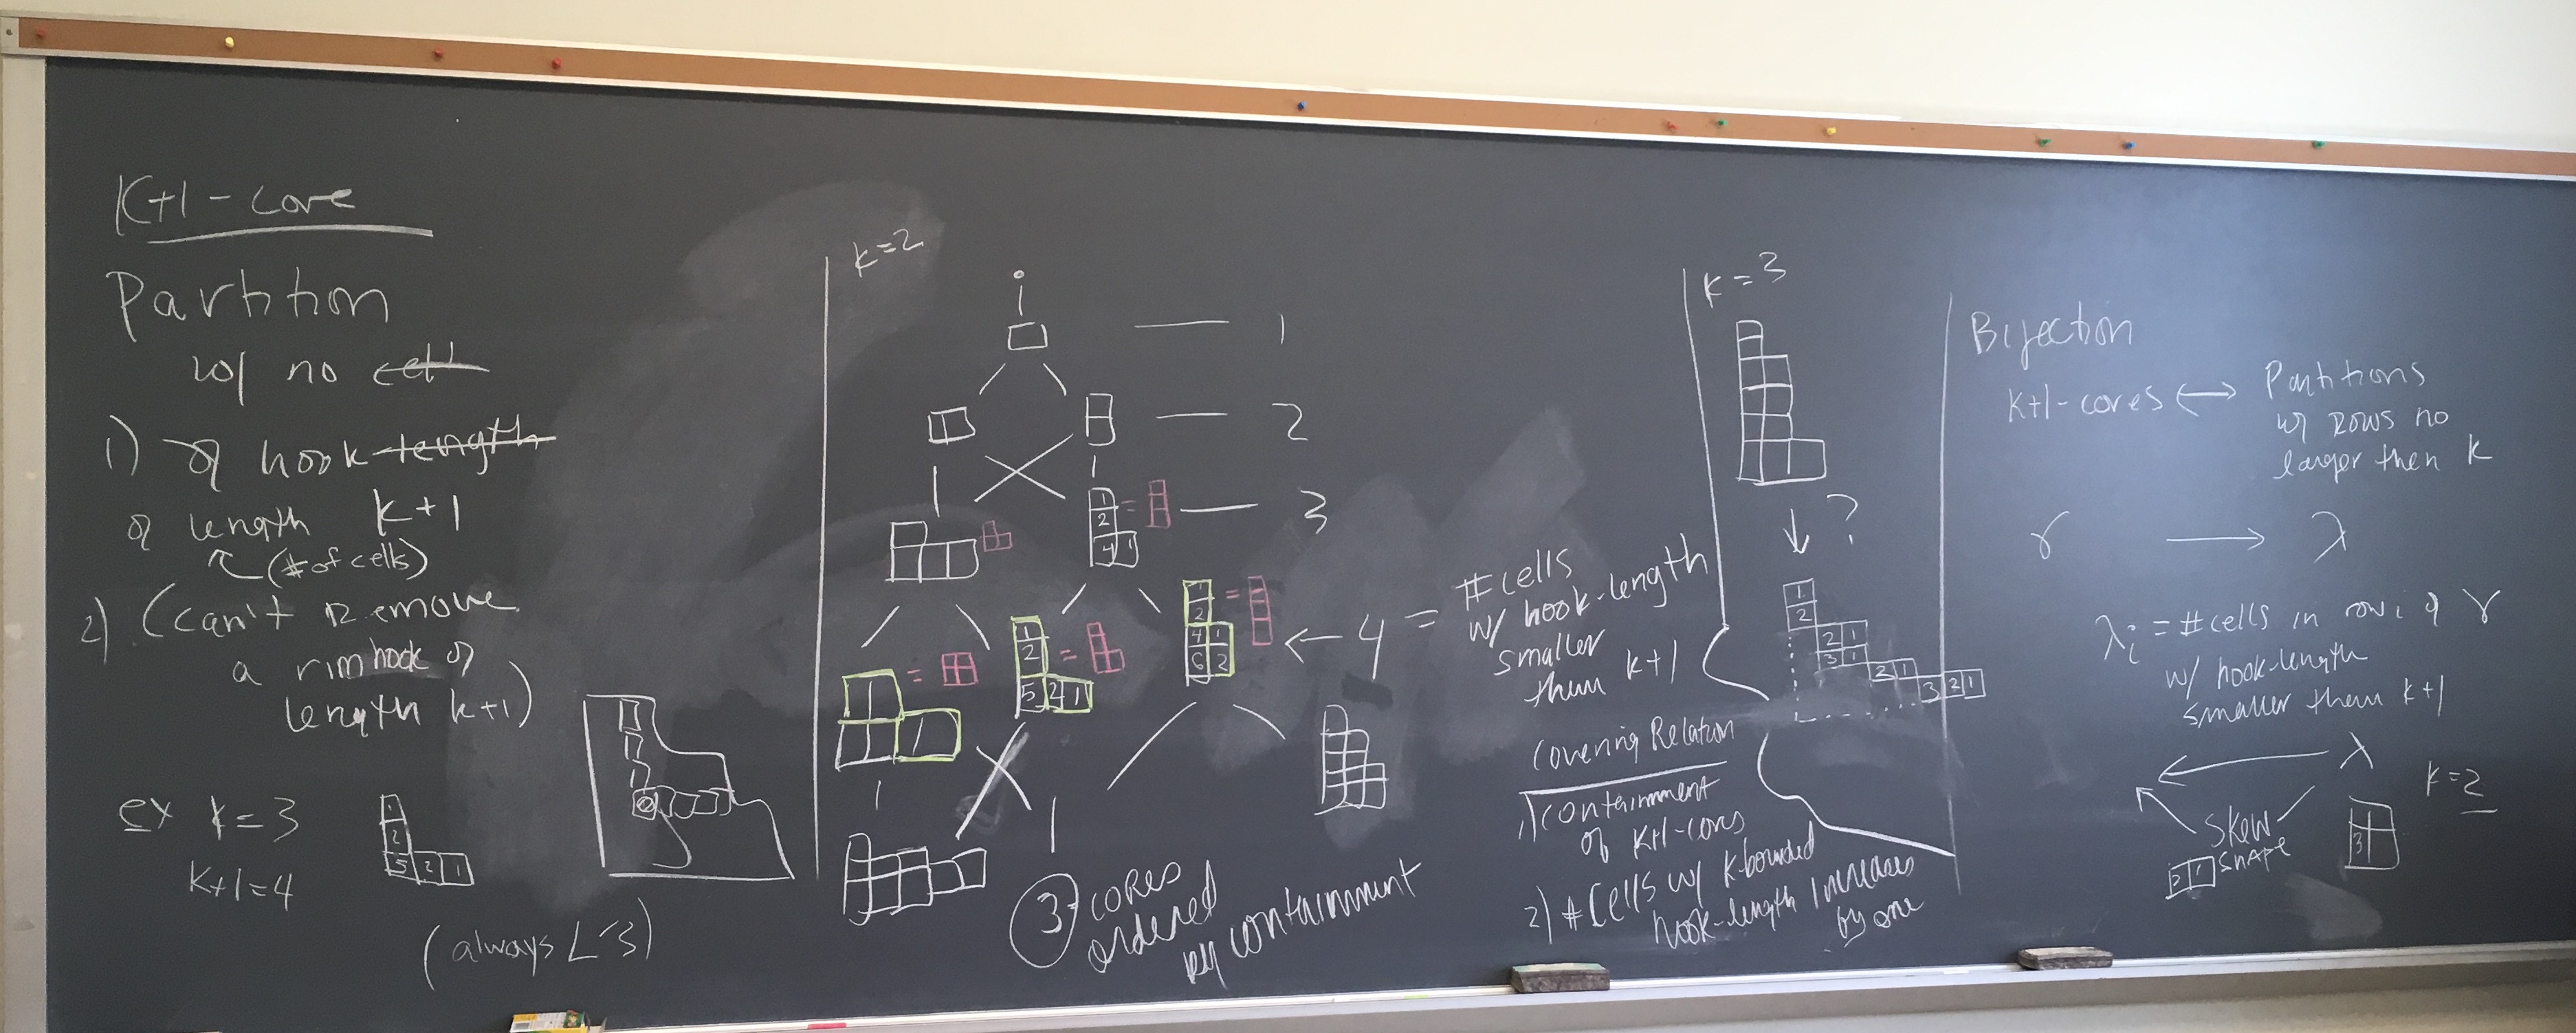 K+1-core
Partition
w/ no cell
1) of hook-length
of length k+1
(# of cells)
2) (can't remove
a rim hook of
length k+1)
ex k=3
k+1=4
1
2
5 2 1
(always L's)
k=2
1
2
1
2
4 1
=
3
1
1
=
1
2
5 2 1
=
1
2
4 1
6 2
=
← 4 = # cells
w/ hook-length
smaller
them k+1
3-cores
ordered
by containment
Covering Relation
1) containment
of k+1-cores
2) # cells w/ k-bounded
hook-length increases
by one
k=3
↓ ?
1
2
2 1
3 1
2 1
3 2 1
Bijection
k+1-cores ↔ Partitions
w/ rows no
larger then k
γ → λ
λi = # cells in row i of γ
w/ hook-length
smaller them k+1
← λ
k=2
skew
shape
2 1
3